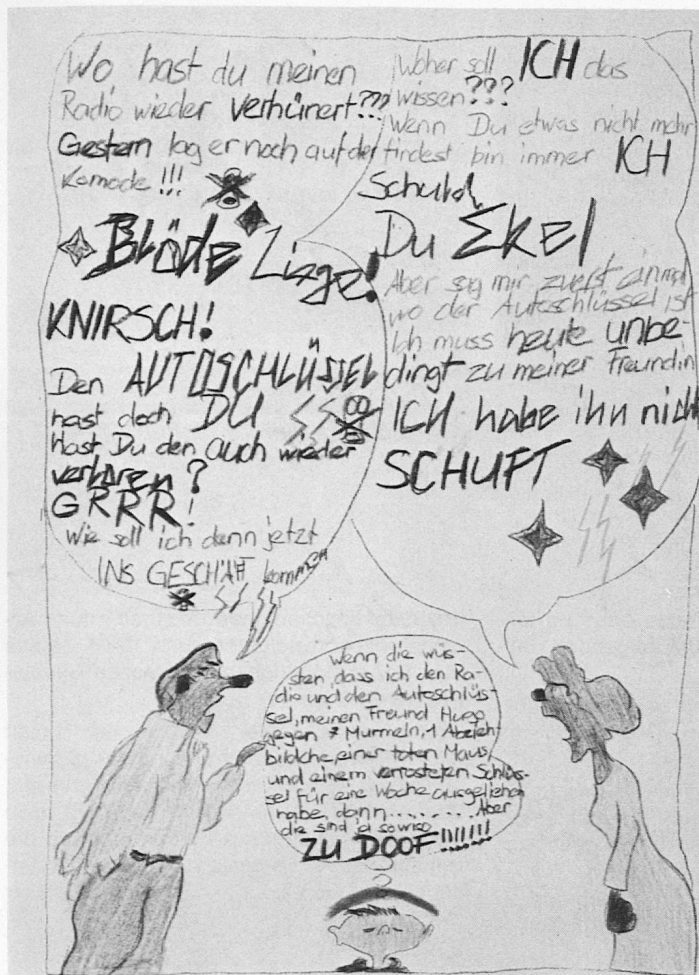 Wo hast du meinen
Radio wieder verhünert???
Gestern lag er noch auf der
Komode!!!
Blöde Ziege!
KNIRSCH!
Den AUTOSCHLÜSSEL
hast doch DU
Hast Du den auch wieder
verloren?
GRRR!
Wie soll ich denn jetzt
INS GESCHÄFT kommen
Woher soll ICH das
wissen???
Wenn Du etwas nicht mehr
findest bin immer ICH
Schuld
Du Ekel
Aber sag mir zuerst einmal
wo der Autoschlüssel ist
Ich muss heute unbe-
dingt zu meiner Freundin
ICH habe ihn nicht
SCHUFT
Wenn die wüs-
sten, dass ich den Ra-
dio und den Autoschlüs-
sel, meinen Freund Hugo
gegen 7 Murmeln, 1 Abzieh
bildche, einer toten Maus,
und einem verrosteten Schlüs-
sel für eine Woche ausgeliehen
habe, dann......... Aber
die sind ja sowiso
ZU DOOF!!!!!!!